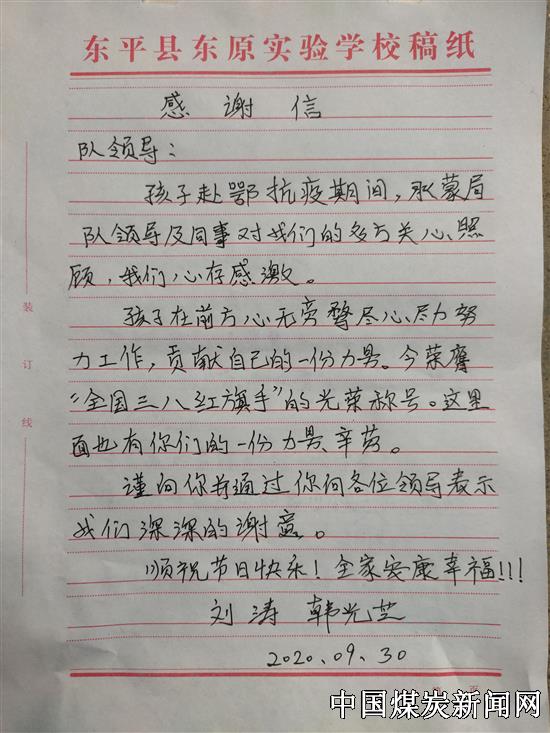 东平县东原实验学校稿纸
感谢信
队领导：
孩子赴鄂抗疫期间，承蒙局
队领导及同事对我们的多方关心、照
顾，我们心存感激。
孩子在前方心无旁骛尽心、尽力努
力工作，贡献自己的一份力量。今荣膺
“全国三八红旗手”的光荣称号。这里
面也有你们的一份力量、辛劳。
谨向你并通过你向各位领导表示
我们深深的谢意。
顺祝节日快乐！全家安康幸福！！！
刘涛 韩光芝
2020.09.30
装
订
线
中国煤炭新闻网